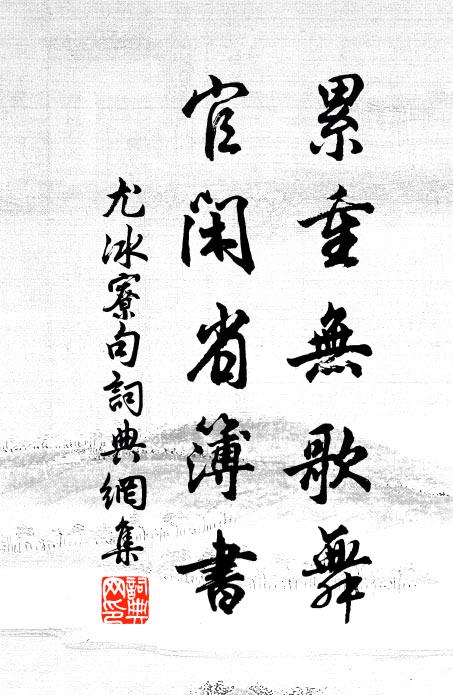 累重無歌舞
官閑省簿書
尤冰寮句詞典網集
詞典
网印